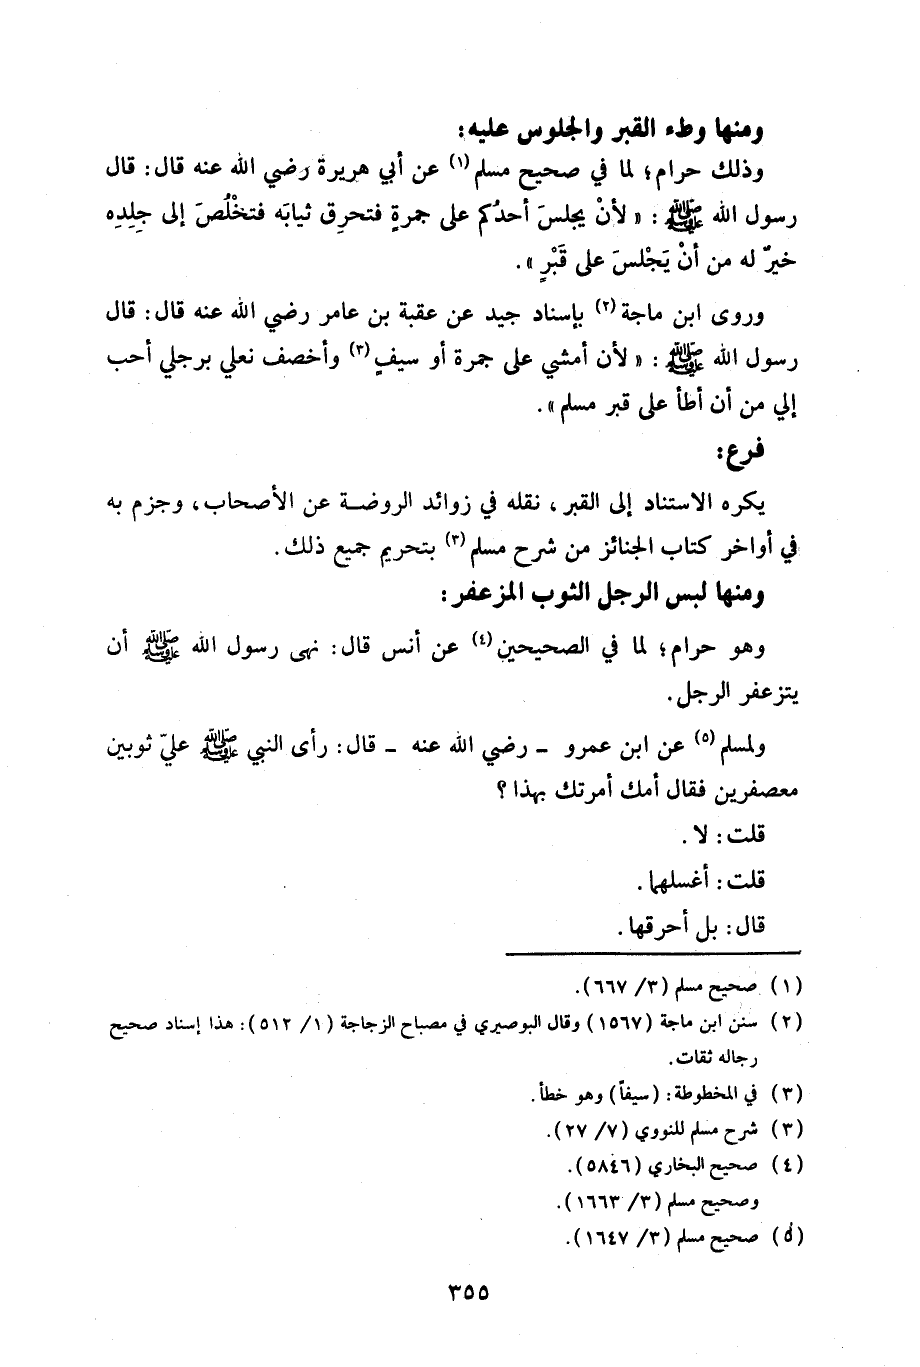 ومنها وطء القبر والجلوس عليه:
وذلك حرام؛ لما في صحيح مسلم(١) عن أبي هريرة رضي الله عنه قال: قال
رسول الله ﷺ: « لأنْ يجلسَ أحدُكم على جمرةٍ فتحرِق ثيابَه فتخْلُصَ إلى جِلِدِه
خيرٌ له من أنْ يَجْلسَ على قَبْرٍ ».
وروى ابن ماجة(٢) بإسناد جيد عن عقبة بن عامر رضي الله عنه قال: قال
رسول الله ﷺ: « لأن أمشي على جمرة أو سيفٍ(٣) وأخصف نعلي برجلي أحب
إلي من أن أطأ على قبر مسلم».
فرع:
يكره الاستناد إلى القبر، نقله في زوائد الروضة عن الأصحاب، وجزم به
في أواخر كتاب الجنائز من شرح مسلم(٣) بتحريم جميع ذلك.
ومنها لبس الرجل الثوب المزعفر:
وهو حرام؛ لما في الصحيحين(٤) عن أنس قال: نهى رسول الله ﷺ أن
يتزعفر الرجل.
ولمسلم(٥) عن ابن عمرو - رضي الله عنه - قال: رأى النبي ﷺ عليّ ثوبين
معصفرين فقال أمك أمرتك بهذا؟
قلت: لا.
قلت: أغسلهما.
قال: بل أحرقها.
(١) صحيح مسلم (٣/ ٦٦٧).
(٢) سنن ابن ماجة (١٥٦٧) وقال البوصيري في مصباح الزجاجة (١/ ٥١٢): هذا إسناد صحيح
رجاله ثقات.
(٣) في المخطوطة: (سيفاً) وهو خطأ.
(٣) شرح مسلم للنووي (٧/ ٢٧).
(٤) صحيح البخاري (٥٨٤٦).
وصحيح مسلم (٣/ ١٦٦٣).
(٥) صحيح مسلم (٣/ ١٦٤٧).
٣٥٥